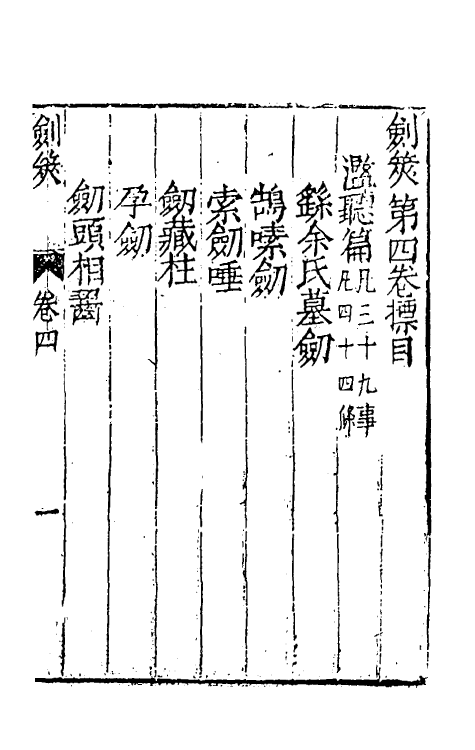 劍筴第四卷標目
灎聽篇凡三十九事
凡四十四條
繇余氏墓劒
鵠嗉劒
索劒唾
劒藏柱
孕劒
劒頭相齧
劍筴
卷四
一